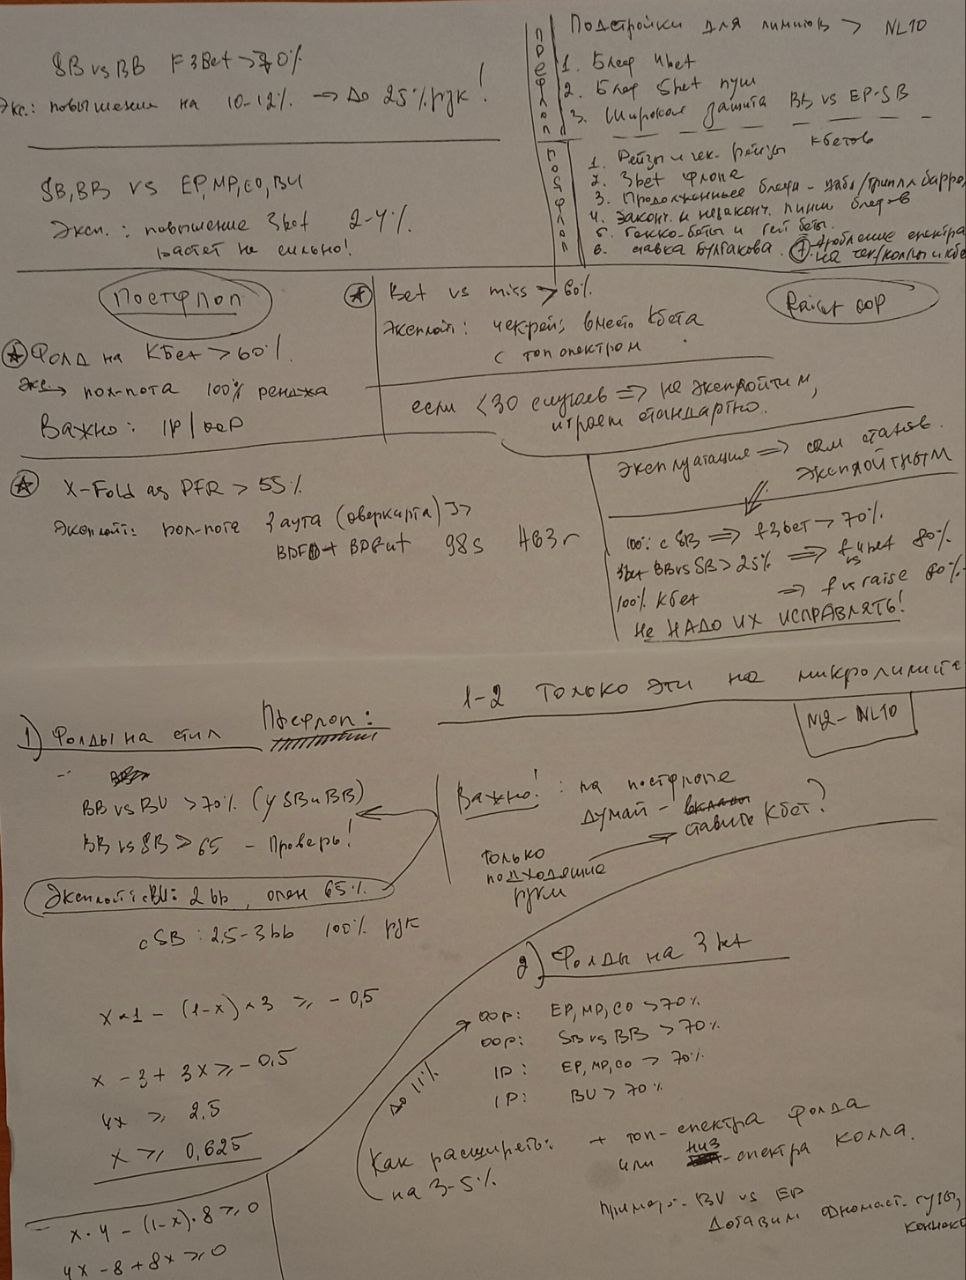 SB vs BB F 3Bet > 70%
Экс.: повышение на 10-12% → до 25% рук!
SB, BB vs EP, MP, CO, BU
Эксп.: повышение 3bet 2-4%
не сильно!
Префлоп
Подстройки для лимитов > NL10
1. Блеф 4bet
2. Блеф 5bet пуш
3. Широкая защита BB vs EP-SB
Постфлоп
1. Рейзы и чек-рейзы кбетов
2. 3bet флопа
3. Продолженные блефы - дабл/трипл барре
4. Законч. и незаконч. линии блефов
5. Гекко-беты и гей беты
6. ставка Булгакова. 7 Дробление спектра на чек/коллы и кбе
Постфлоп
Фолд на Кбет > 60%.
Экс → пол-пота 100% ренджа
Важно: IP/OOP
Bet vs miss > 60%
Эксплойт: чекрейз вместо Кбета
с топ спектром
Raiser OOP
если < 30 случаев ⇒ не эксплойтим,
играем стандартно.
X-Fold as PFR > 55%
Эксплойт: пол-пота 3 аута (оверкарта)
BDFD + BDGut 98s H63r
Эксплуатация ⇒ сам станов.
эксплойтным
100% с SB ⇒ f3бет > 70%
3bet BB vs SB > 25% ⇒ f vs 4bet 80%
100% Кбет ⇒ f vs raise 80%
Не НАДО ИХ ИСПРАВЛЯТЬ!
1-2 Только эти на микролимите
NL2 - NL10
Префлоп:
1) Фолды на стил
BB vs BU > 70% (у SB и BB)
BB vs SB > 65 - Проверь!
Эксплойт с BU: 2bb, опен 65%
с SB: 2,5-3bb 100% рук
Важно!: на постфлопе
думай - ставить Кбет?
только
подходящие
руки
x*1 - (1-x)*3 ≥ -0,5
x - 3 + 3x ≥ -0.5
4x ≥ 2.5
x ≥ 0,625
x·4 - (1-x)·8 ≥ 0
4x - 8 + 8x ≥ 0
2) Фолды на 3bet
OOP: EP, MP, CO > 70%
OOP: SB vs BB > 70%
IP: EP, MP, CO > 70%
IP: BU > 70%
До 11%
Как расширять: + топ-спектра фолда
на 3-5% или низ-спектра колла.
Пример: BU vs EP
Добавим одномаст. тузы,
коннект